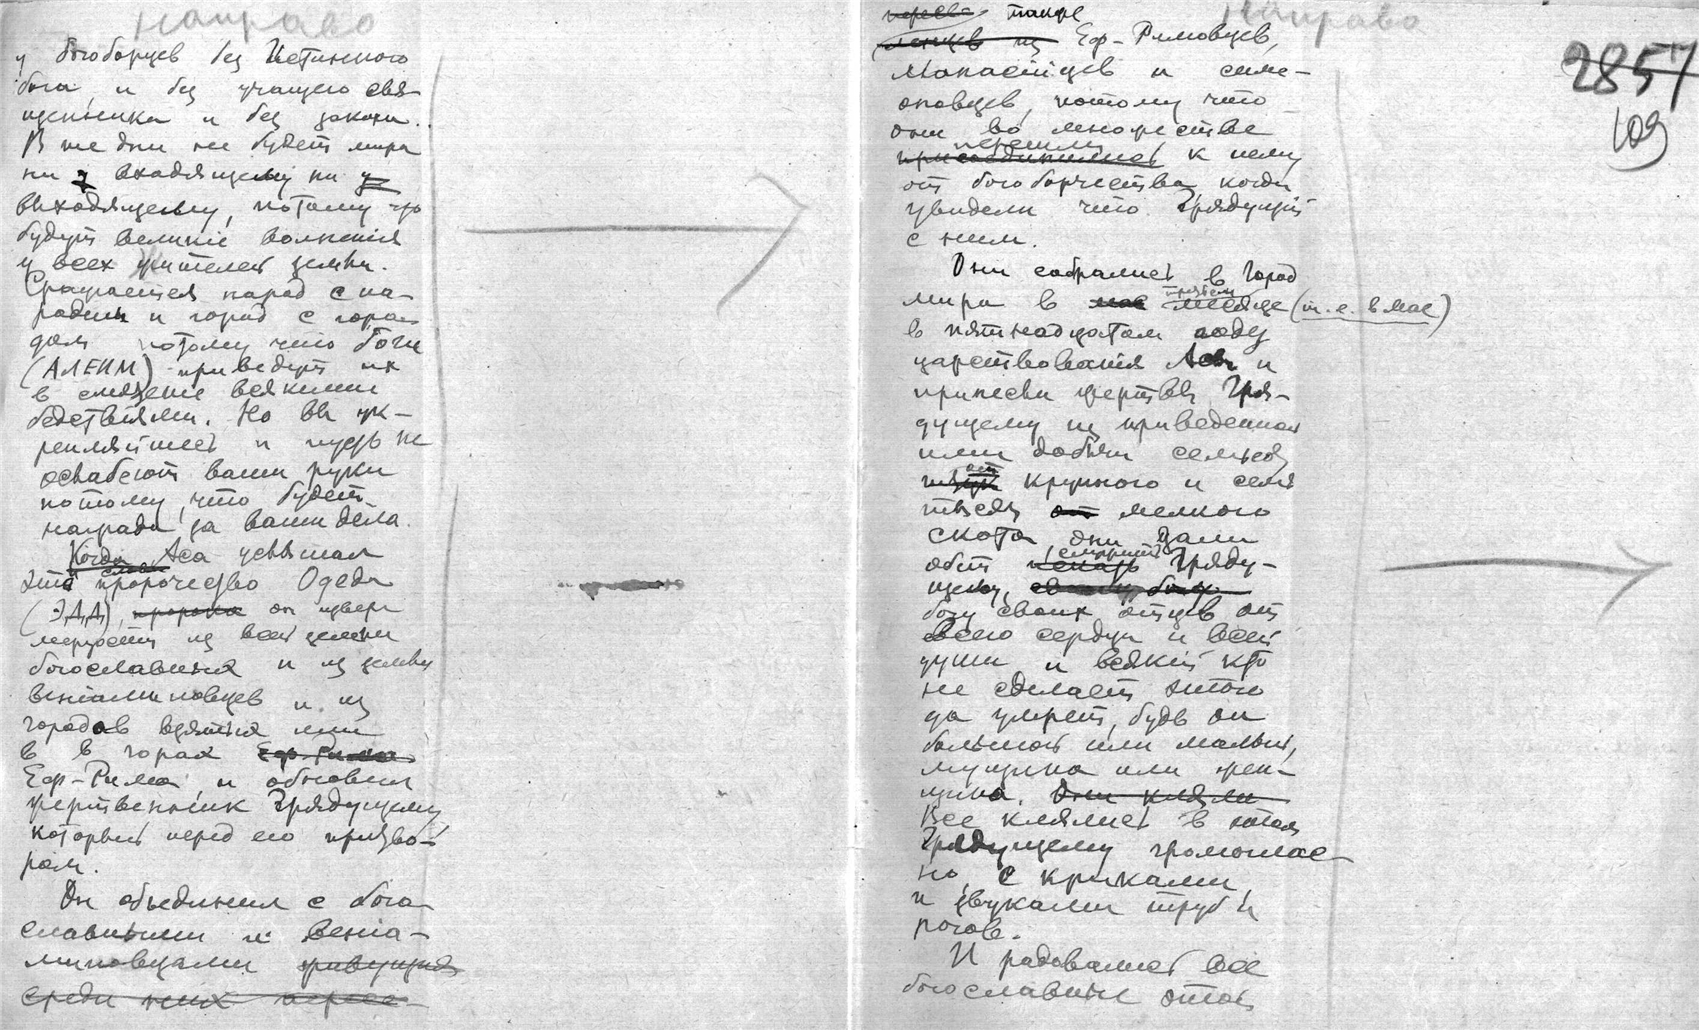 Направо
у богоборцев без Истинного
бога и без учащего свя-
щенника и без закона.
В те дни не будет мира
ни входящему ни
выходящему, потому что
будут великіе волненія
у всех жителей земли.
Сразится народ с на-
родом и город с горо-
дом потому что боги
(АЛЕИМ) приведут их
в смязение всякими
бедствіями. Но вы ук-
репляйтесь и пусть не
ослабеют ваши руки
потому, что будет
награда за ваши дела.
Когда Аса услышал
это пророчество Одеда
(ЭДД), пророка он изверг
мерзости из всей земли
богославныя и из земли
веніаминовцев и из
городов взятых им
в в горах Еф-Рима
Еф-Рима и обновил
жертвенник Грядущему
который перед его притво-
ром.
Он объединил с бого
славными и веніа-
миновцами живущих
среди них пересе-
Направо
пересе также
ленцев из Еф-Римовцев,
Манасійцев и симе-
оновцев, потому что
они во множестве
перешли
присоединились к нему
от богоборчества, когда
увидели что Грядущій
с ним.
Они собрались в Город
мира в третьем месяце (т. е. в мае)
в пятнадцатом году
царствованія Асы и
принесли жертвы Гря-
дущему из приведенной
ими добычи семьсот
крупного и семь
тысяч от мелкого
скота они дали
обет искать Гряду-
щему, своему богу
богу своих отцев от
всего сердца и всей
души и всякій кто
не сделает этого
да умрет, будь он
большой или малый,
мущина или жен-
щина. Они кляли
Все клялись в этом
Грядущему громоглас-
но, с криками
и звуками труб и
рогов.
И радовались все
богославные этой
2857
109